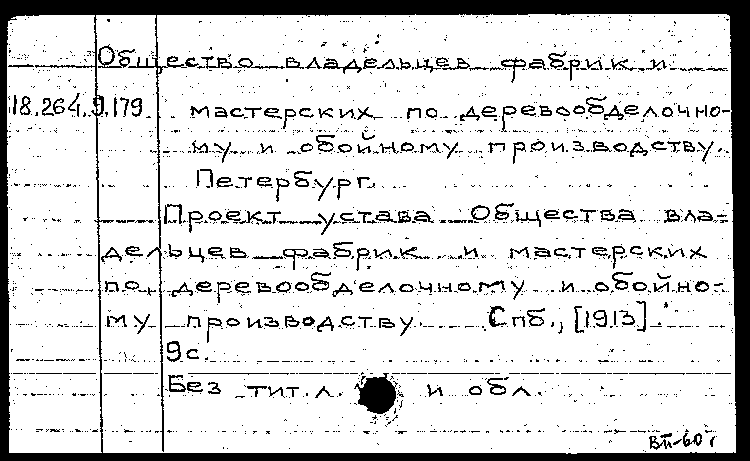 Общество владельцев фабрик и
18.264.9.179 мастерских по деревообделочно-
му и обойному производству.
Петербург.
Проект устава Общества вла-
дельцев фабрик и мастерских
по деревообделочному и обойно-
му производству. Спб., [1913].
9с.
Без тит. л. и обл.
ВП-60г